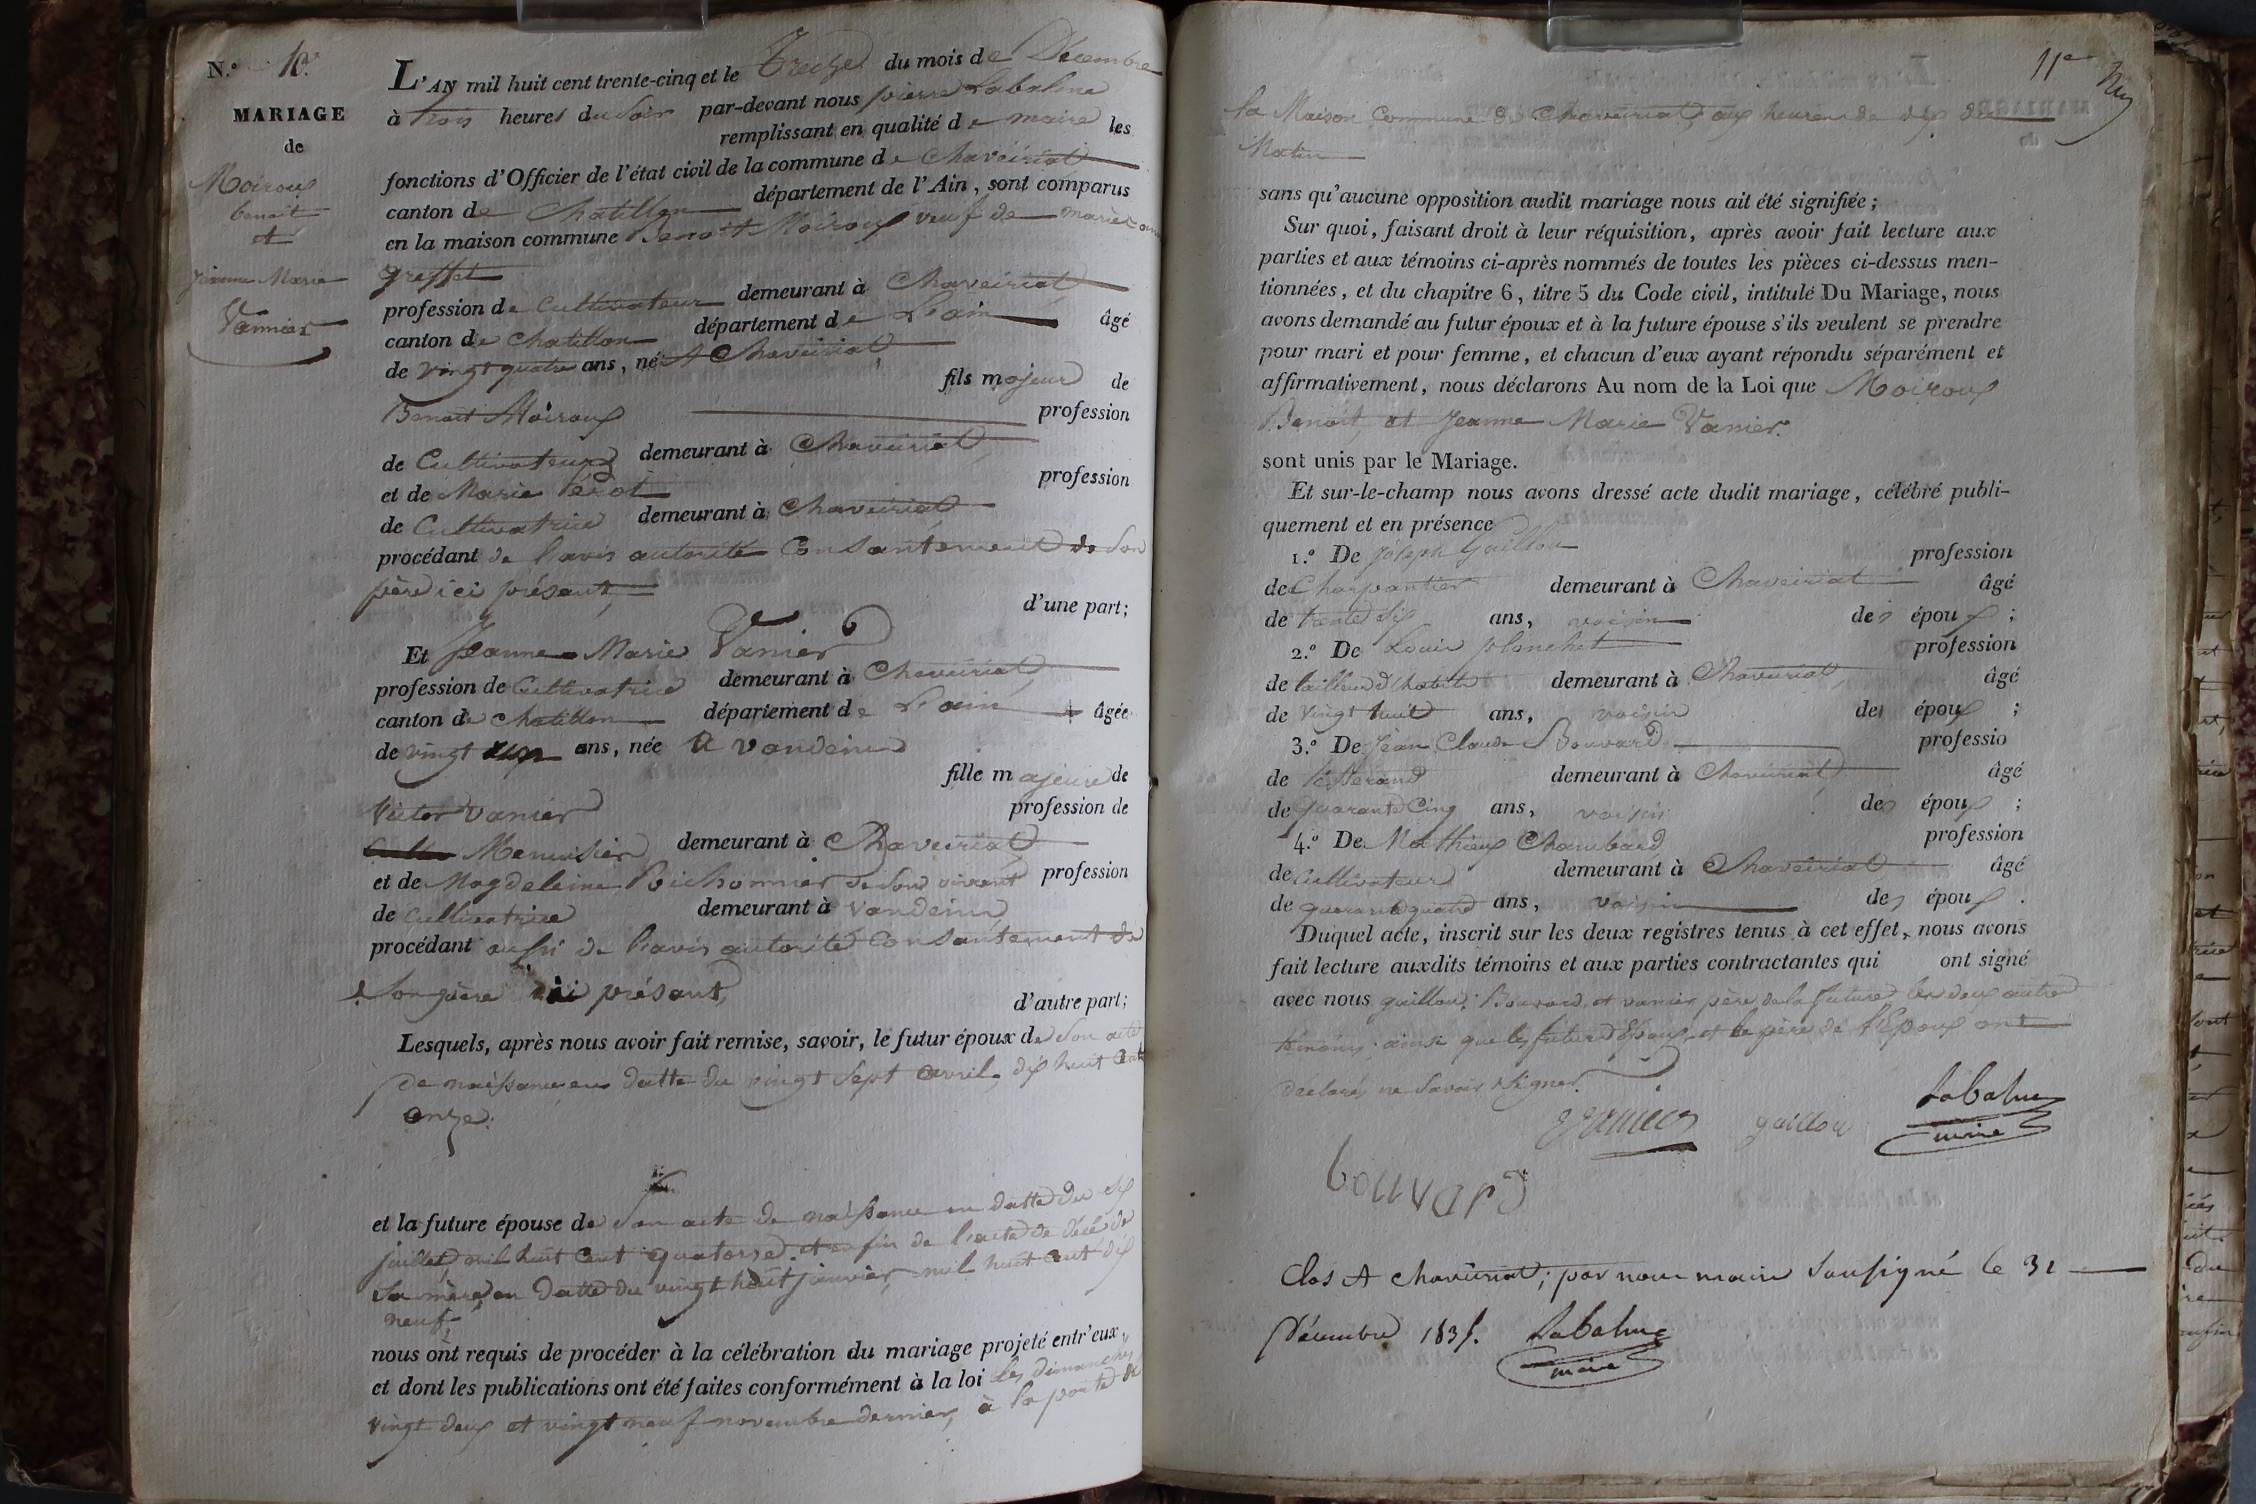 N.o 10.
MARIAGE
de
Moiroux
benoit
et
jeanne Marie
Vannier
L'AN mil huit cent trente-cinq et le Treize du mois de Décembre
à trois heures du Soir par-devant nous pierre Labalme
remplissant en qualité de maire les
fonctions d'Officier de l'état civil de la commune de Chaveiriat
canton de Chatillon département de l'Ain, sont comparus
en la maison commune Benoit Moiroux veuf de marie
greffet
profession de Cultivateur demeurant à Chaveiriat
canton de Chatillon département de L'ain âgé
de vingt quatre ans, né A Chaveiriat
fils majeur de
Benoit Moiroux profession
de Cultivateur demeurant à Chaveiriat
et de Marie profession
de Cultivatrice demeurant à Chaveiriat
procédant de l'avis autorité Consantement de Son
père ici présant,
d'une part;
Et Jeanne Marie Vanier
profession de Cultivatrice demeurant à Chaveiriat
canton de Chatillon département de L'ain âgée
de vingt un ans, née A vandeins
fille majeure de
Victor Vanier profession de
Menuisier demeurant à Chaveiriat
et de Magdeleine Poichonnier de Son vivant profession
de Cultivatrice demeurant à Vandeins
procédant aussi de l'avis autorité Consantement de
Son père ici présant,
d'autre part;
Lesquels, après nous avoir fait remise, savoir, le futur époux de Son acte
de naissance en datte du vingt Sept avril, dix huit Cent
onze.
et la future épouse de Son acte de naissance en datte du six
juillet mil huit Cent quatorse. et enfin de l'acte de décé de
Sa mère en datte du vingt huit janvier mil huit Cent dix
neuf,
nous ont requis de procéder à la célébration du mariage projeté entr'eux,
et dont les publications ont été faites conformément à la loi les dimanches
vingt deux et vingt neuf novembre dernier, à la porte de
11e
la Maison Commune de Chaveiriat, aux heures de dix du
Matin
sans qu'aucune opposition audit mariage nous ait été signifiée;
Sur quoi, faisant droit à leur réquisition, après avoir fait lecture aux
parties et aux témoins ci-après nommés de toutes les pièces ci-dessus men-
tionnées, et du chapitre 6, titre 5 du Code civil, intitulé Du Mariage, nous
avons demandé au futur époux et à la future épouse s'ils veulent se prendre
pour mari et pour femme, et chacun d'eux ayant répondu séparément et
affirmativement, nous déclarons Au nom de la Loi que Moiroux
Benoit, et Jeanne Marie Vanier.
sont unis par le Mariage.
Et sur-le-champ nous avons dressé acte dudit mariage, célébré publi-
quement et en présence
1.o De joseph Guillon profession
de Charpantier demeurant à Chaveiriat âgé
de trente Six ans, voisin des époux;
2.o De Louis planchet profession
de tailleur d'habits demeurant à Chaveiriat, âgé
de vingt huit ans, voisin des époux;
3.o De jean Claude Bouvard professio
de tisserand demeurant à Chaveiriat âgé
de quarante Cinq ans, voisin des époux;
4.o De Mathieux Chambard profession
de Cultivateur demeurant à Chaveiriat âgé
de quarante quatre ans, voisin des époux.
Duquel acte, inscrit sur les deux registres tenus à cet effet, nous avons
fait lecture auxdits témoins et aux parties contractantes qui ont signé
avec nous guillon, Bouvard, et vanier père de la future, les deux autre
témoins ainsi que les futurs Epoux, et le père de l'Epoux ont
déclaré ne Savoir Signer.
Vanier guillon Labalme
maire
bouvard
Clos A Chaveiriat; par nous maire Sousigné le 31
Décembre 1835. Labalme
maire